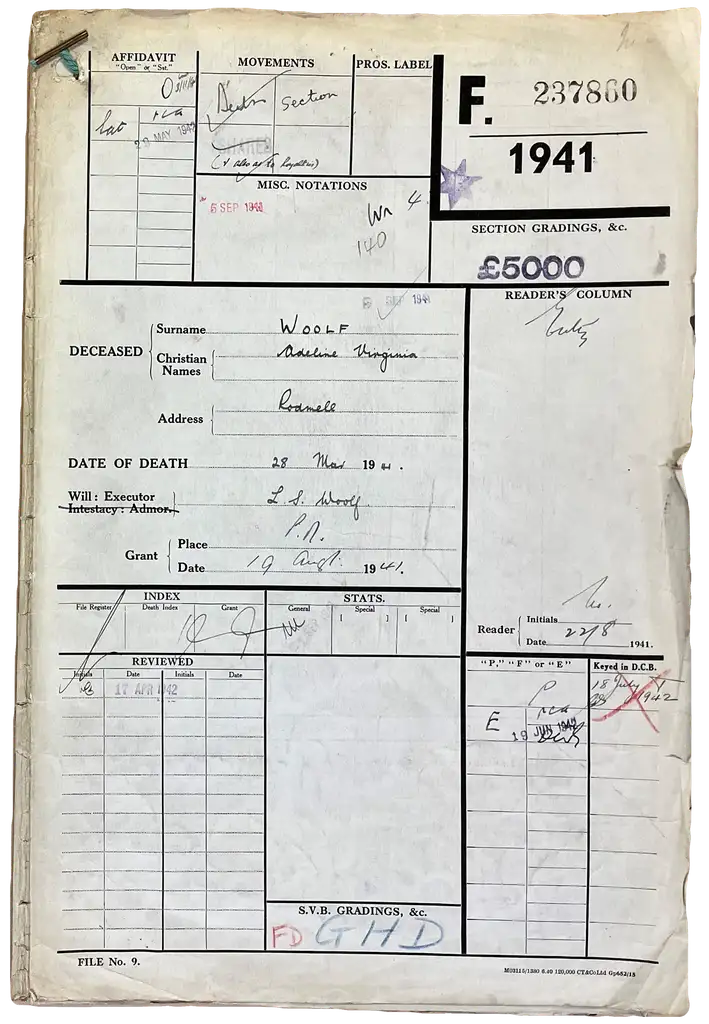 AFFIDAVIT
"Open" or "Sat."
MOVEMENTS
PROS. LABEL
F. 237860
1941
Sat
28 MAY 1942
Section
MISC. NOTATIONS
5 SEP 1941
4
140
SECTION GRADINGS, &c.
£5000
READER'S COLUMN
SEP 1941
DECEASED
Surname WOOLF
Christian Names Adeline Virginia
Address Rodmell
DATE OF DEATH 28 Mar 1941.
Will : Executor L. S. Woolf.
Intestacy : Admor.
Grant
Place P.R.
Date 19 Augt. 1941.
INDEX
File Register
Death Index
Grant
STATS.
General
Special
Special
[ ] [ ]
Reader
Initials
Date 22/8 1941.
REVIEWED
Initials
Date
Initials
Date
17 APR 1942
"P," "F" or "E"
Keyed in D.C.B.
P
18 July 1942
E
19 JUN 1942
S.V.B. GRADINGS, &c.
FD GHD
FILE No. 9.
M03115/1380 6.40 120,000 CT&CoLtd Gp682/15